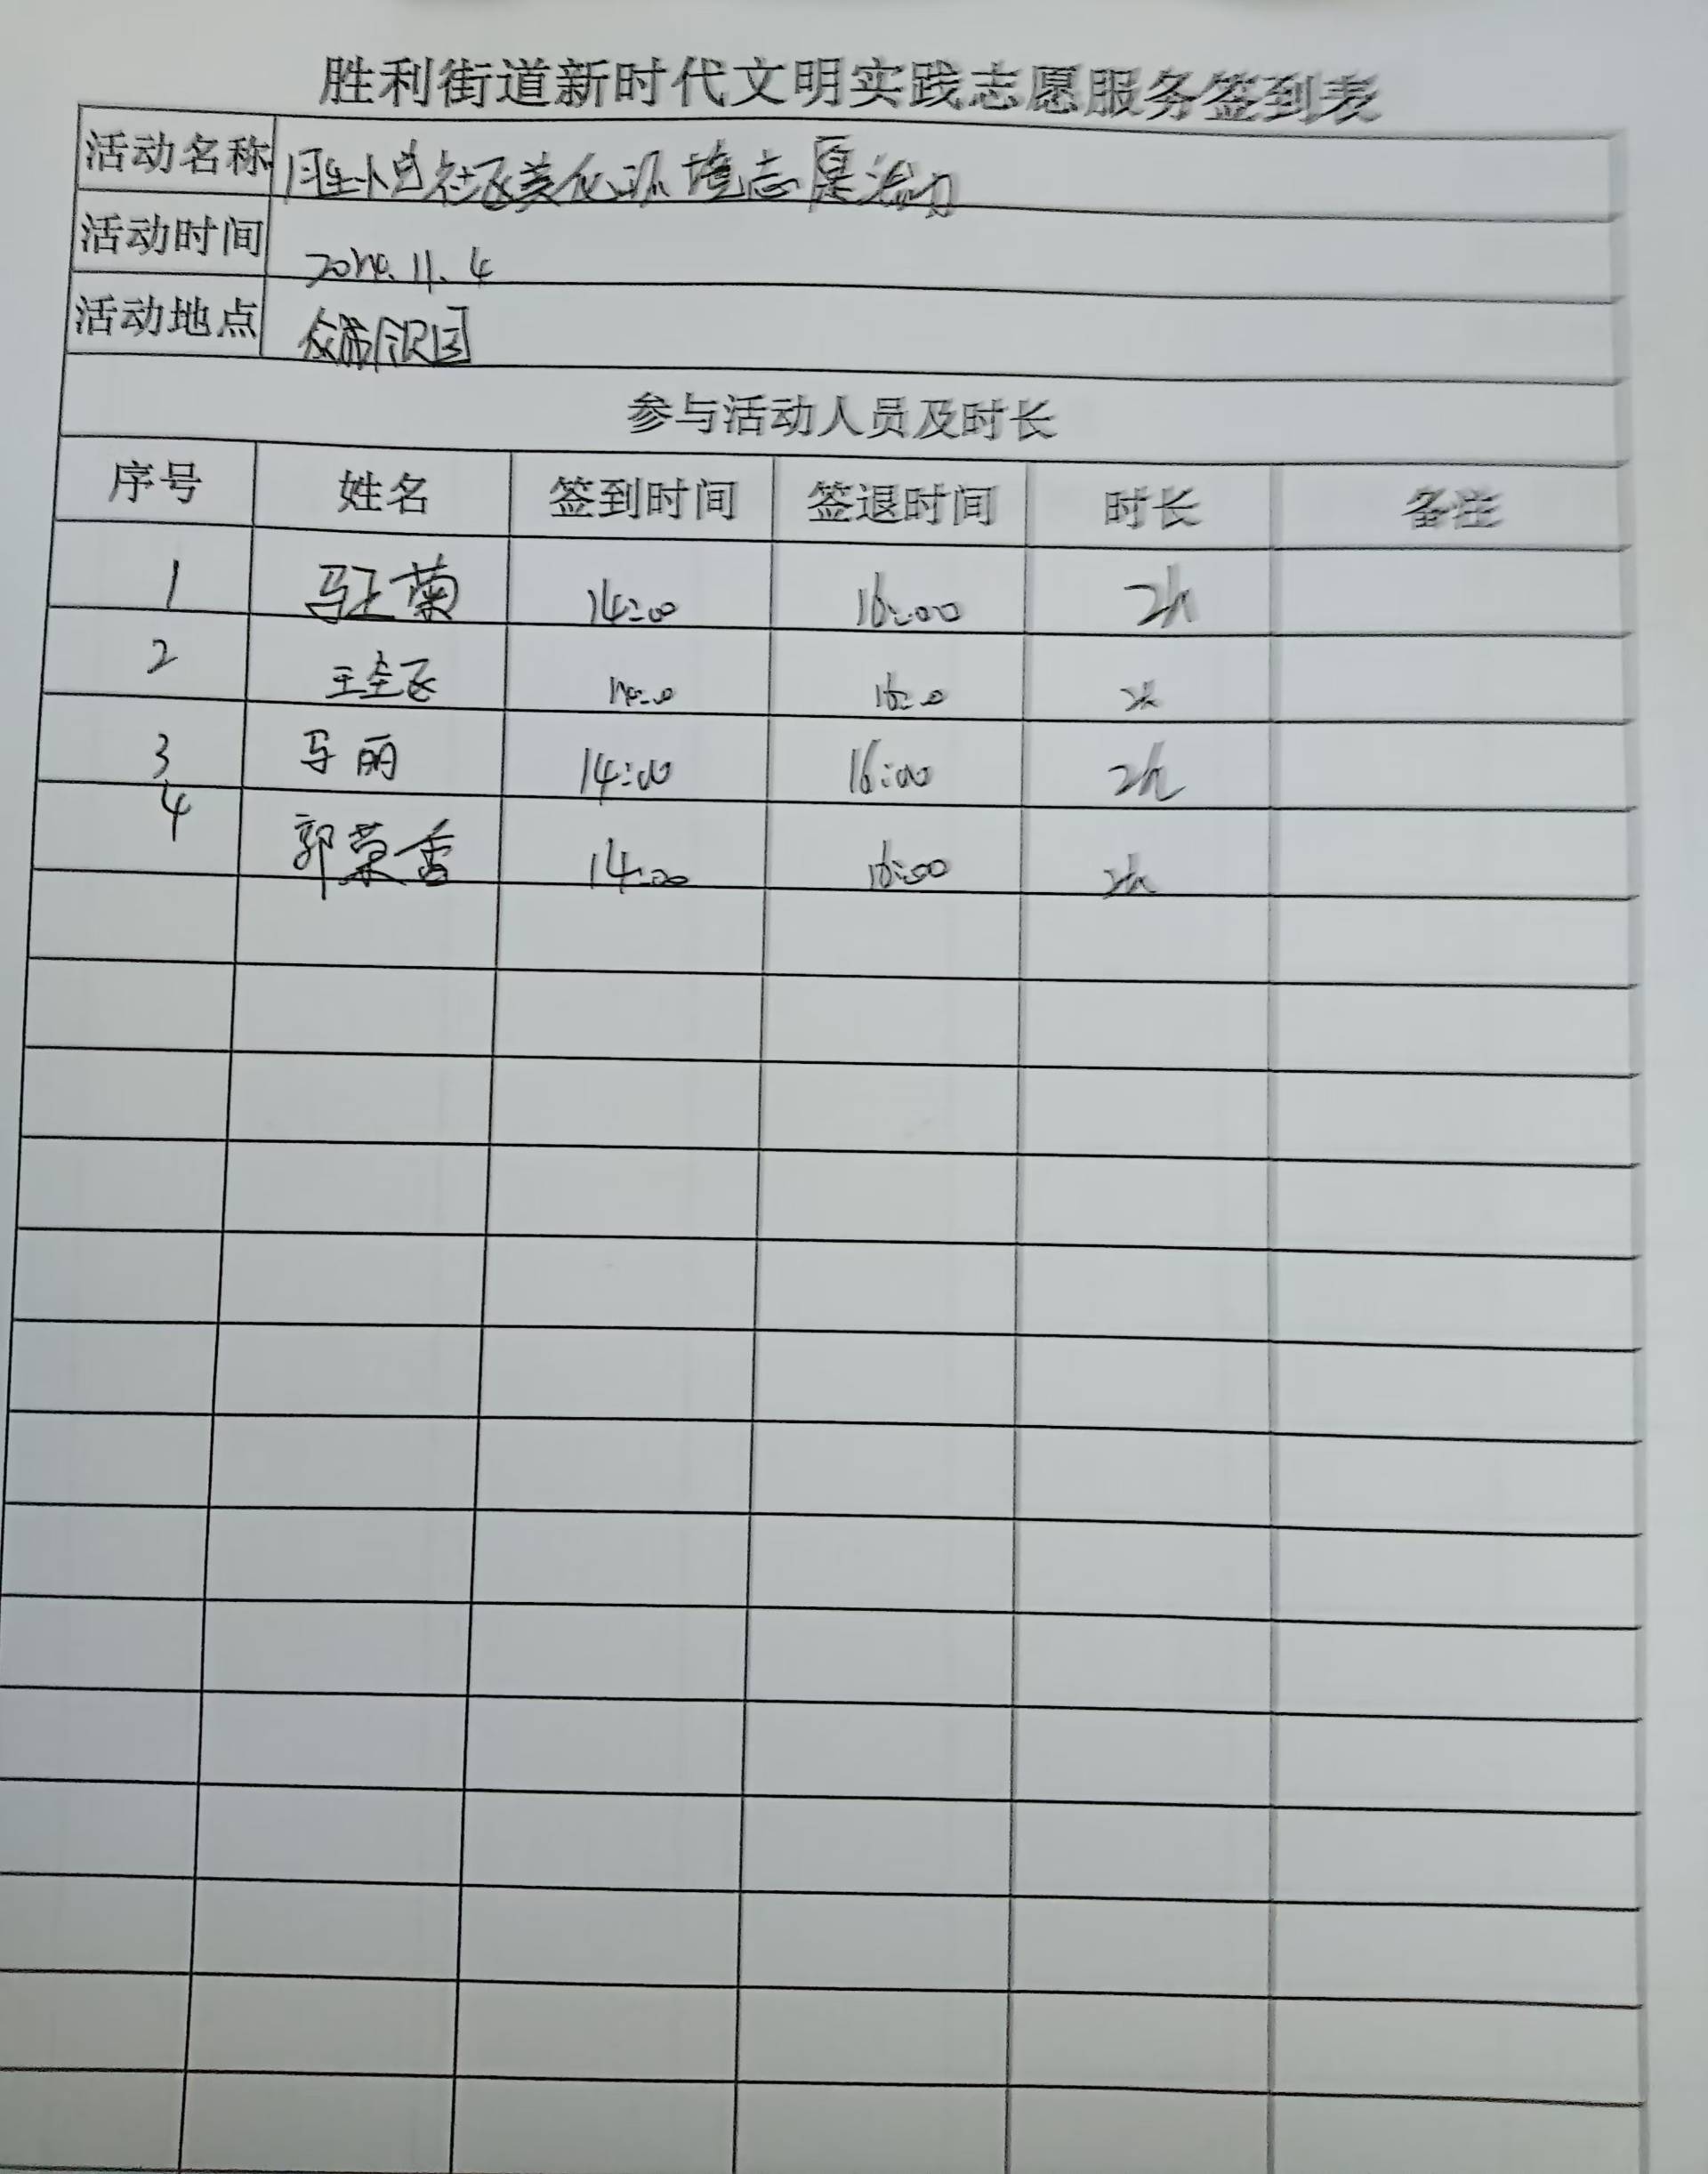 胜利街道新时代文明实践志愿服务签到表
活动名称 社区美化环境志愿活动
活动时间 2024.11.4
活动地点
参与活动人员及时长
序号 姓名 签到时间 签退时间 时长 备注
1 马玉菊 14:00 16:00 2h
2 14:00 16:00 2h
3 马丽 14:00 16:00 2h
4 郭荣香 14:00 16:00 2h